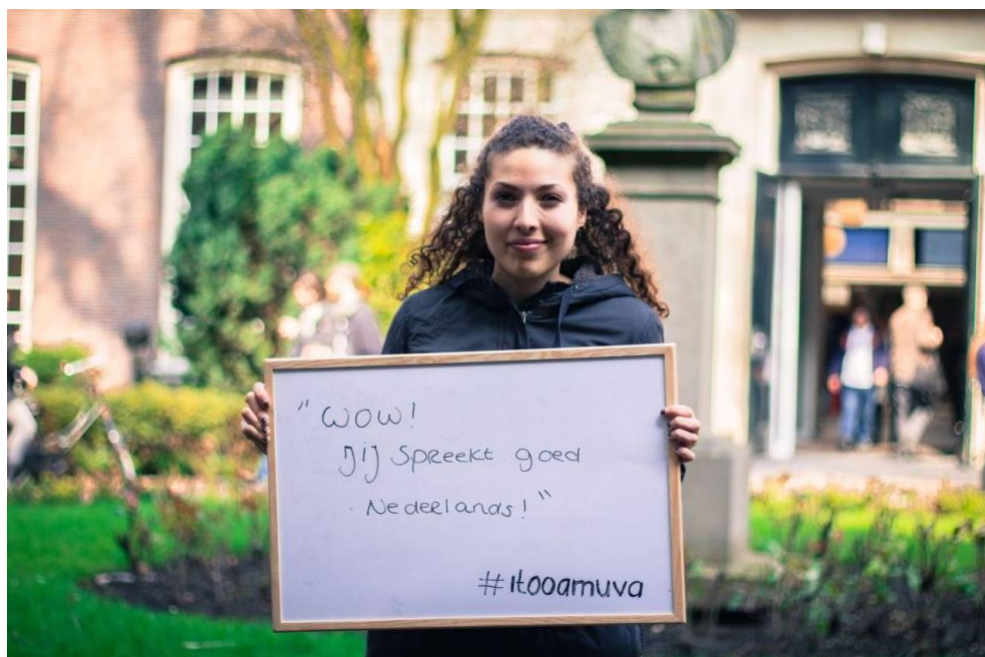 "WOW!
Jij Spreekt goed
Nederlands!"
#itooamuva